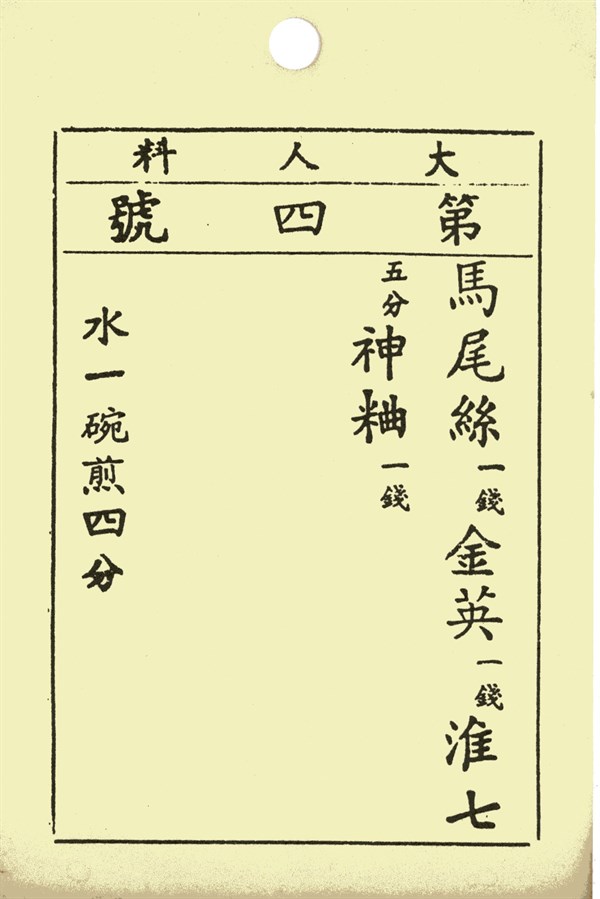 大人料
第四號
馬尾絲一錢金英一錢淮七
五分神粬一錢
水一碗煎四分